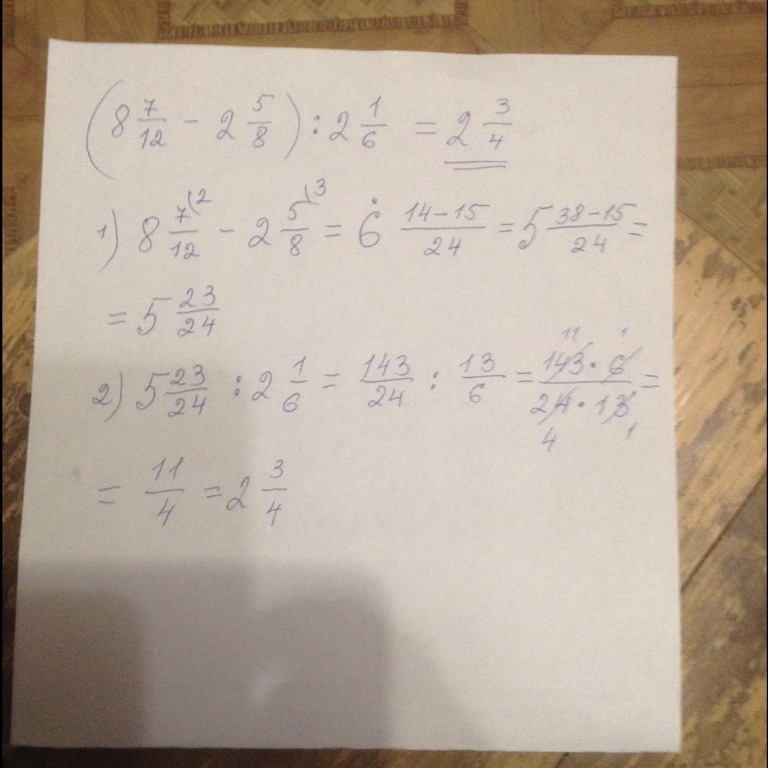 (8 7/12 - 2 5/8) : 2 1/6 = 2 3/4
1) 8 7/12 (2 - 2 5/8 (3 = 6 14-15/24 = 5 38-15/24 =
= 5 23/24
2) 5 23/24 : 2 1/6 = 143/24 : 13/6 = 143 11 · 6 1 / 24 4 · 13 1 =
= 11/4 = 2 3/4